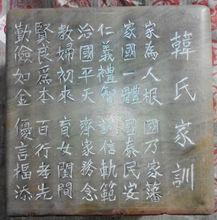 韓氏家訓
家為人根 國乃家藩
家國一體 國泰民安
仁義禮智 誠信軌範
治國平天 齊家務念
教婦初來 育女閨間
賢良為本 百行孝先
勤儉如金 優言福添